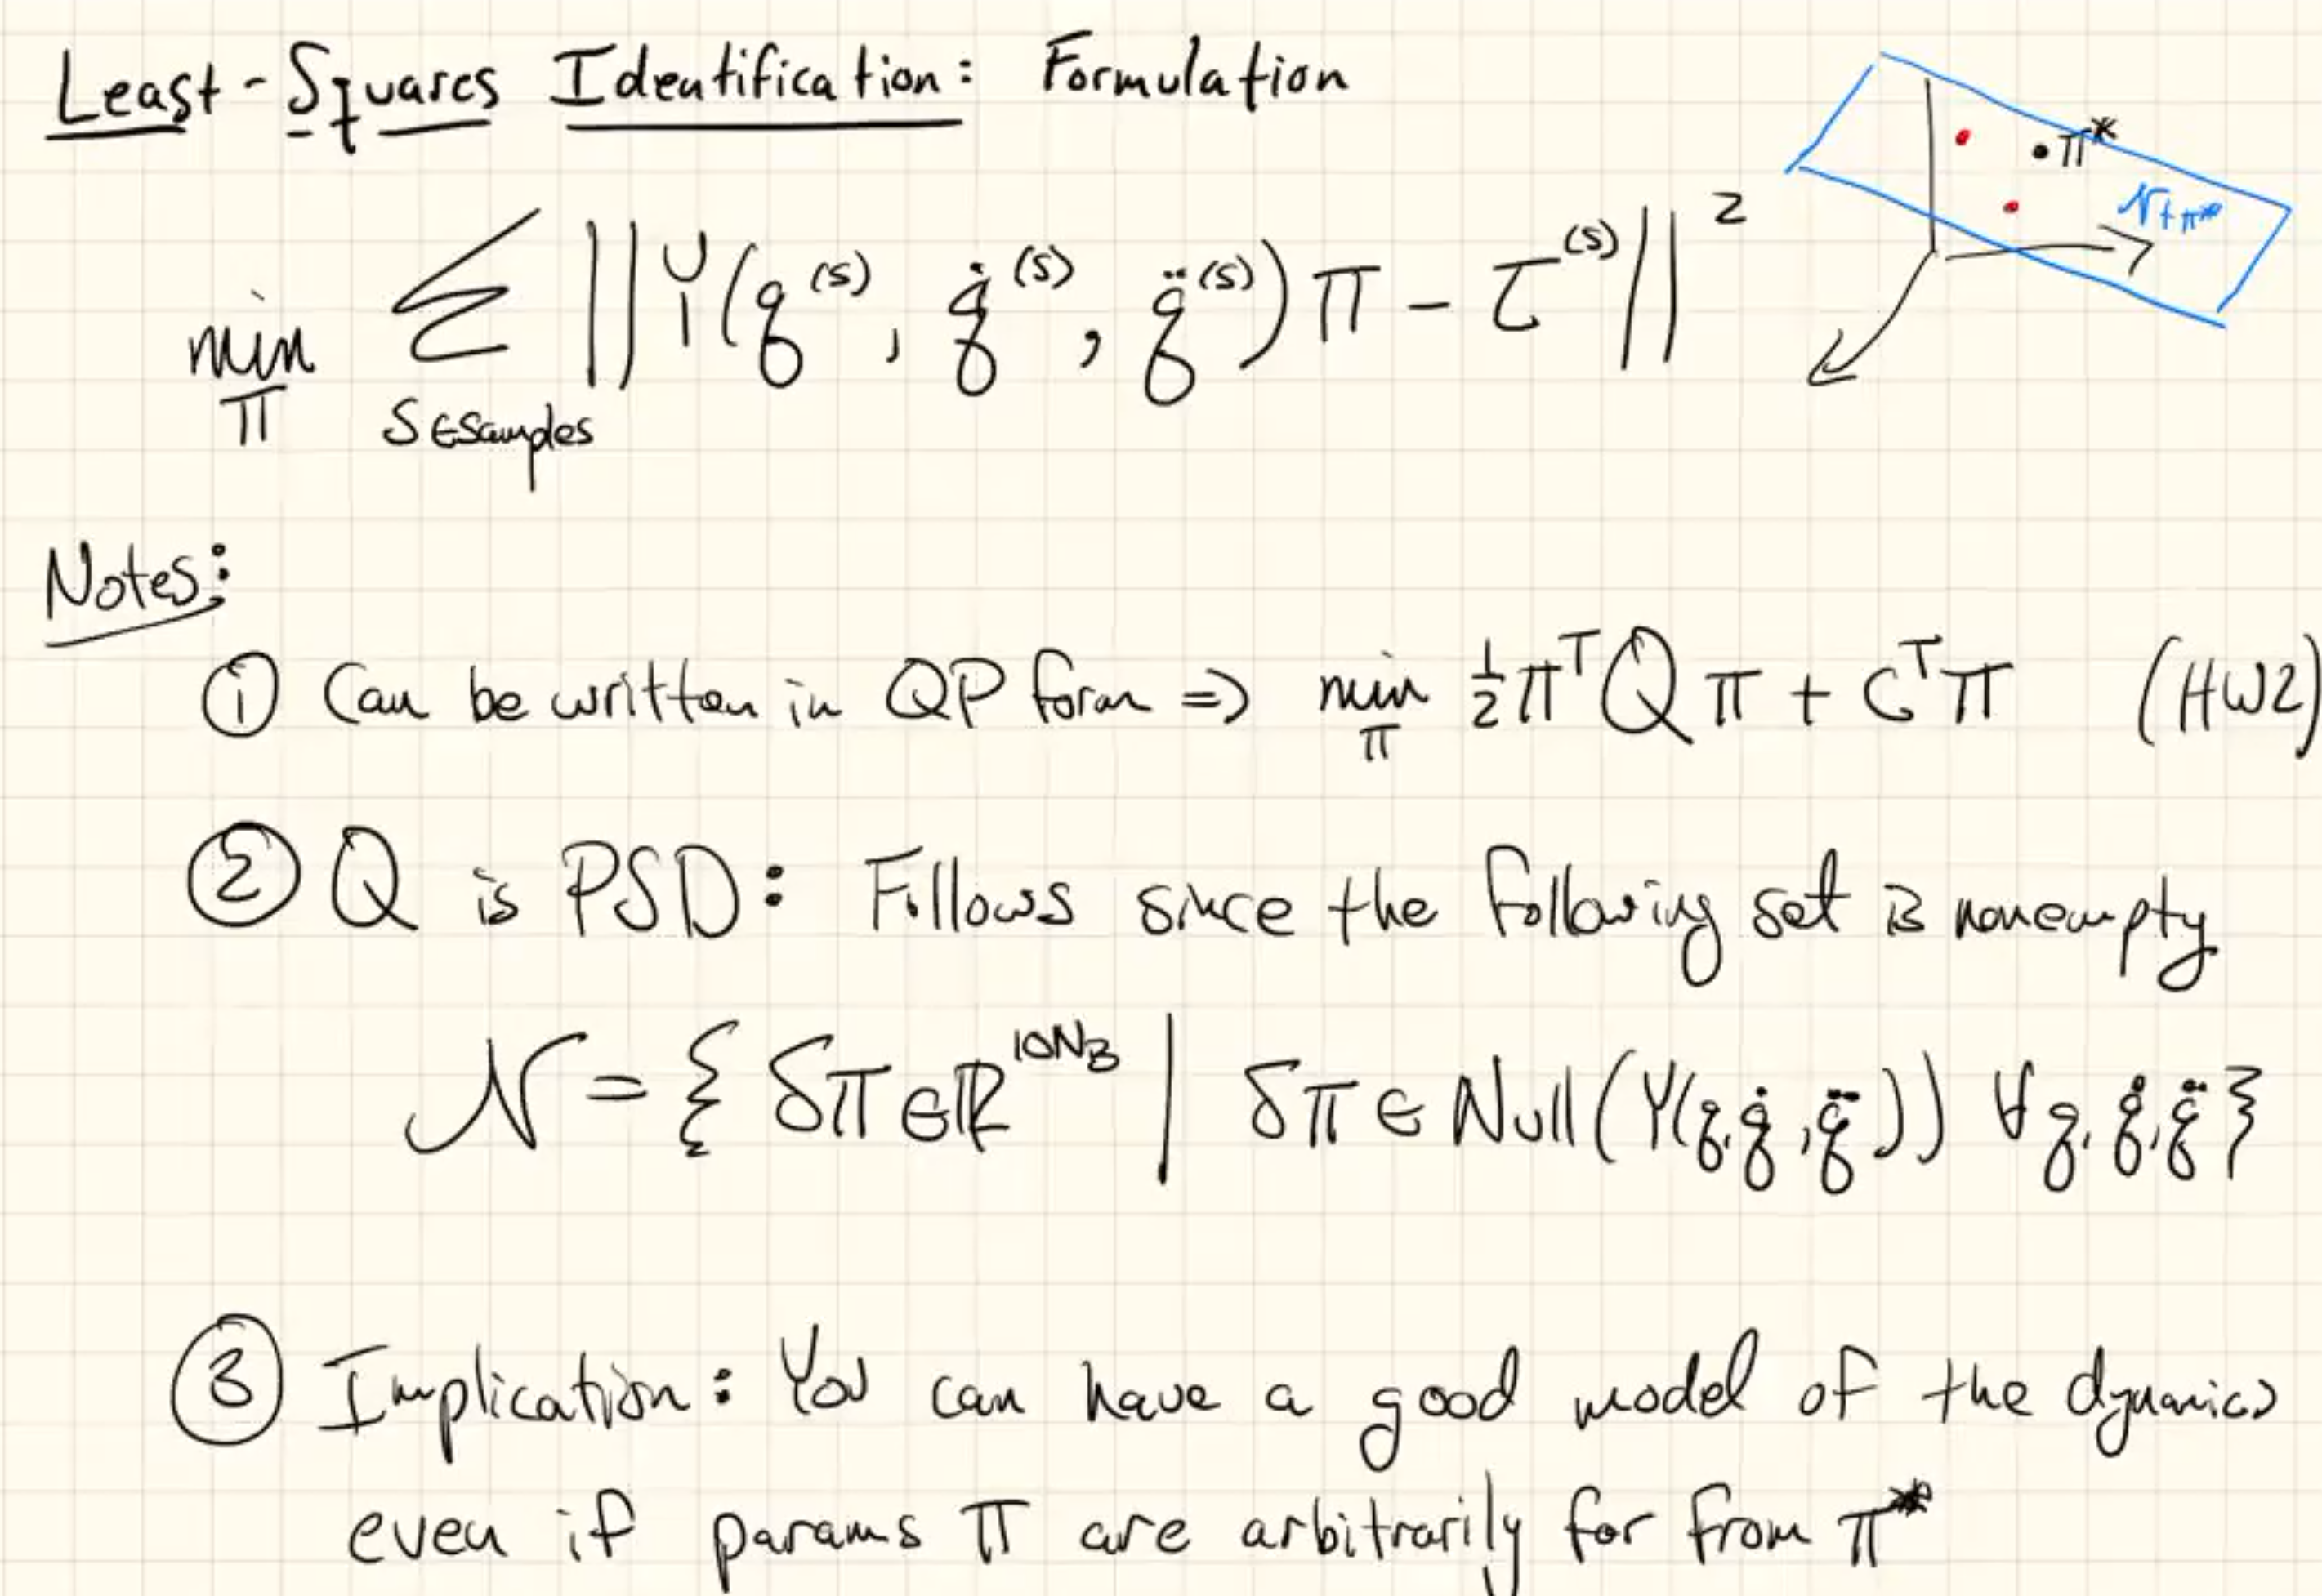 Least-Squares Identification: Formulation
π*
N+π*
min_π Σ_{s∈Samples} ||Y(q^(s), q̇^(s), q̈^(s))π − τ^(s)||²
Notes:
① Can be written in QP form ⇒ min_π ½π^T Q π + c^T π (HW2)
② Q is PSD: Follows since the following set is nonempty
N = { δπ∈ℝ^{10N_B} | δπ ∈ Null(Y(q,q̇,q̈)) ∀q,q̇,q̈ }
③ Implication: You can have a good model of the dynamics
even if params π are arbitrarily far from π*